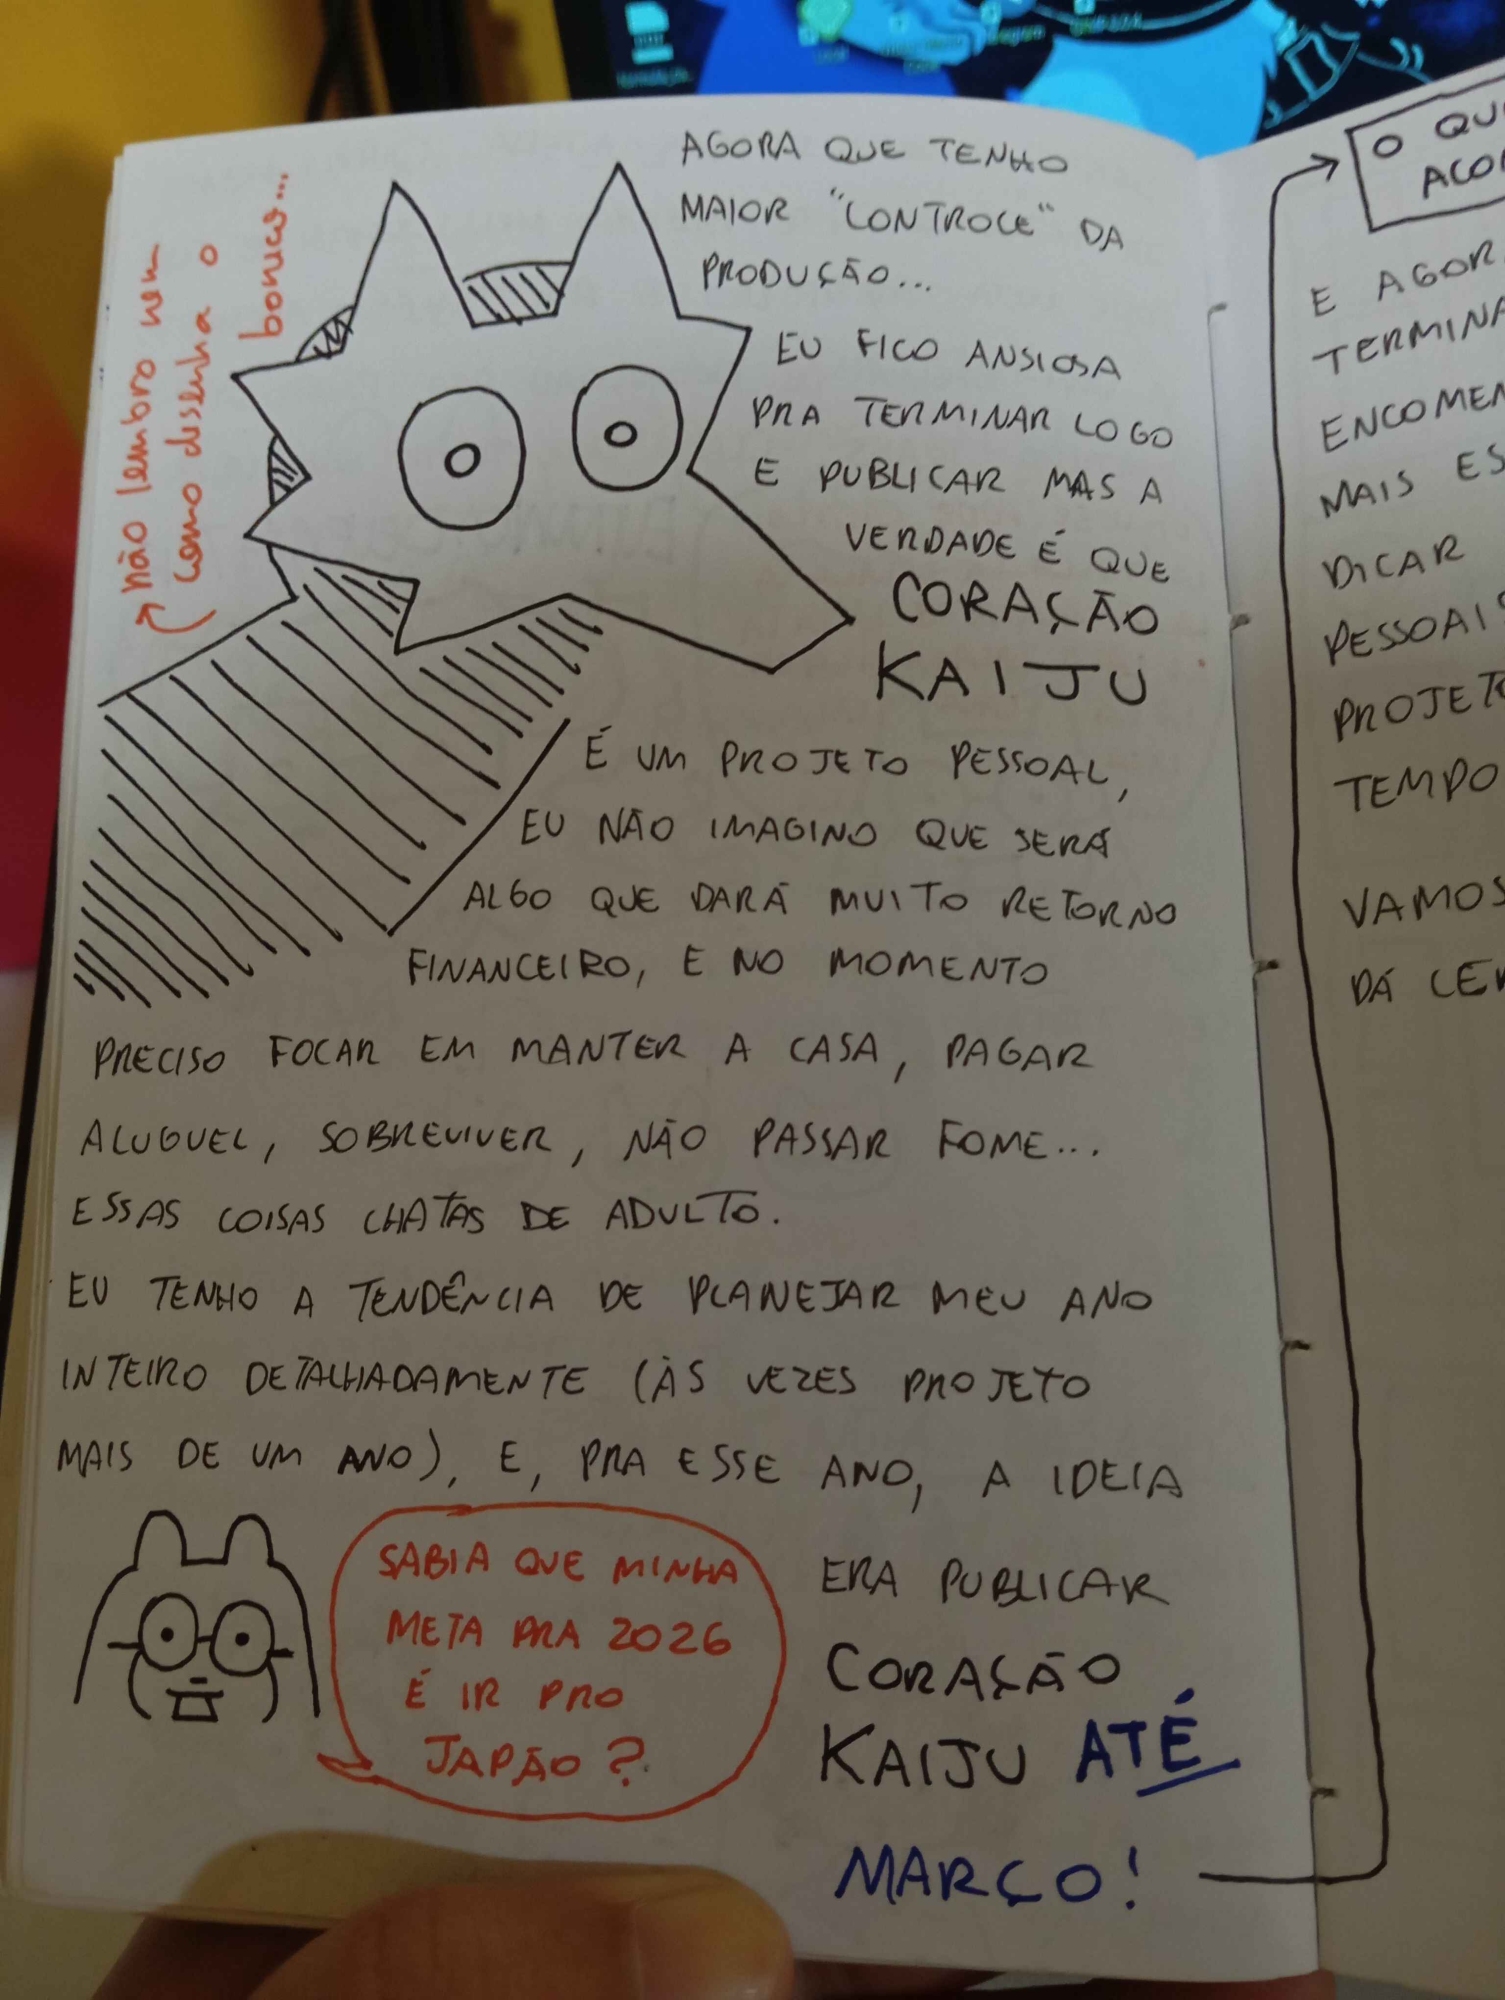 AGORA QUE TENHO
MAIOR "CONTROLE" DA
PRODUÇÃO...
EU FICO ANSIOSA
PRA TERMINAR LOGO
E PUBLICAR MAS A
VERDADE É QUE
CORAÇÃO
KAIJU
É UM PROJETO PESSOAL,
EU NÃO IMAGINO QUE SERÁ
ALGO QUE DARÁ MUITO RETORNO
FINANCEIRO, E NO MOMENTO
PRECISO FOCAR EM MANTER A CASA, PAGAR
ALUGUEL, SOBREVIVER, NÃO PASSAR FOME...
ESSAS COISAS CHATAS DE ADULTO.
EU TENHO A TENDÊNCIA DE PLANEJAR MEU ANO
INTEIRO DETALHADAMENTE (ÀS VEZES PROJETO
MAIS DE UM ANO), E, PRA ESSE ANO, A IDEIA
ERA PUBLICAR
CORAÇÃO
KAIJU ATÉ
MARÇO!
não lembro nem
como desenha o
boneco...
SABIA QUE MINHA
META PRA 2026
É IR PRO
JAPÃO?
O QU
ACO
E AGOR
TERMINA
ENCOMEN
MAIS ES
DICAR
PESSOAIS
PROJETO
TEMPO
VAMOS
DÁ